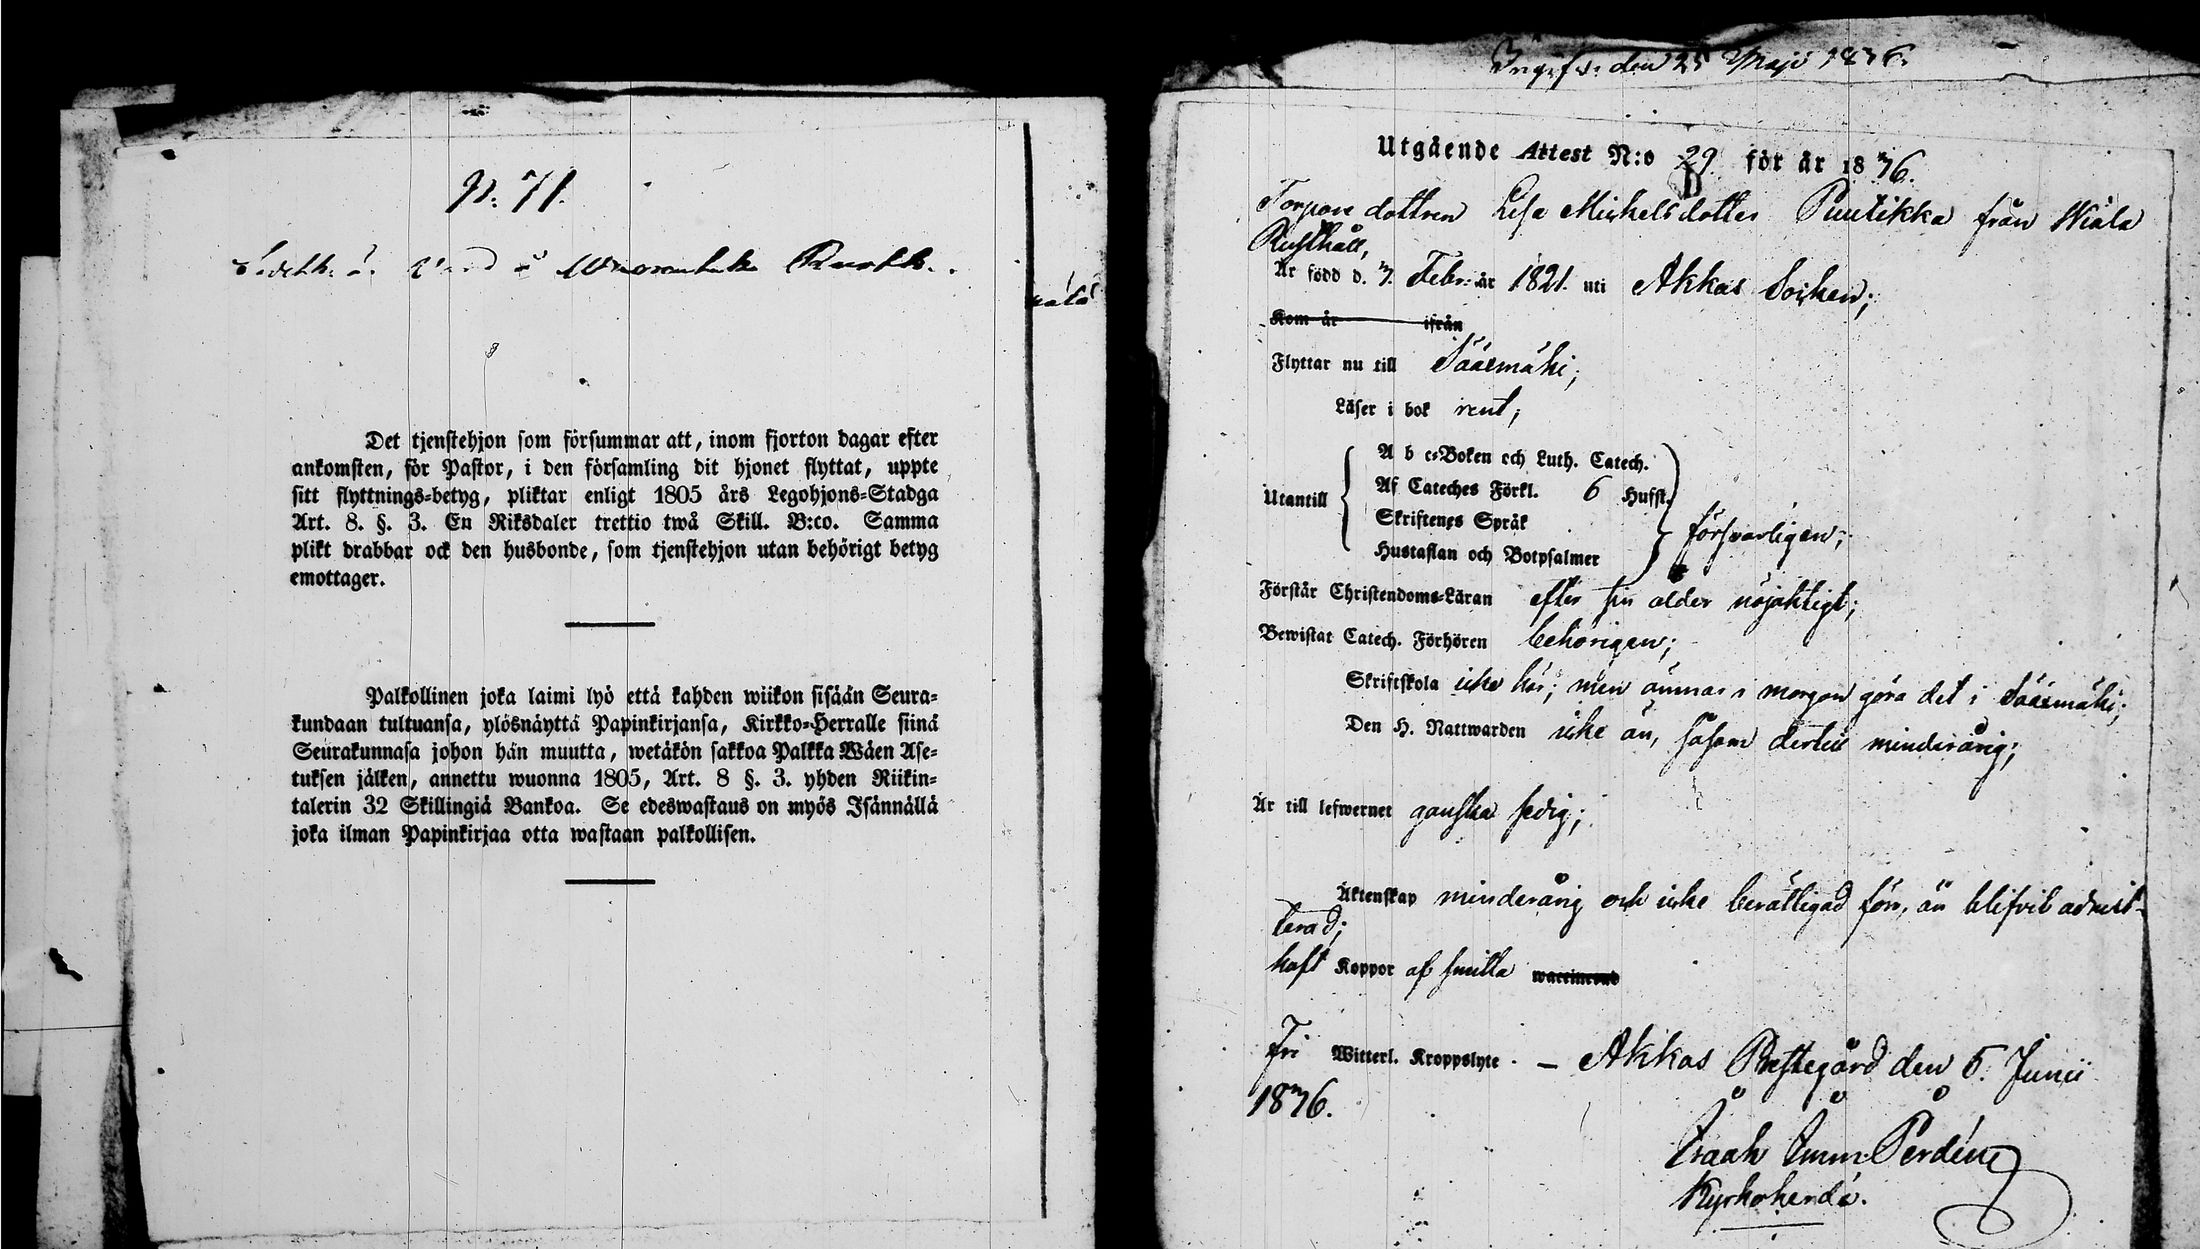 N. 71.
Rusth.
Det tjenstehjon som försummar att, inom fjorton dagar efter
ankomsten, för Pastor, i den församling dit hjonet flyttat, uppte
sitt flyttnings-betyg, pliktar enligt 1805 års Legohjons-Stadga
Art. 8. §. 3. En Riksdaler trettio twå Skill. B:co. Samma
plikt drabbar ock den husbonde, som tjenstehjon utan behörigt betyg
emottager.
Palkollinen joka laimi lyö että kahden wiikon sisään Seura-
kundaan tultuansa, ylösnäyttä Papinkirjansa, Kirkko-Herralle siinä
Seurakunnasa johon hän muutta, wetäkön sakkoa Palkka Wäen Ase-
tuksen jälken, annettu wuonna 1805, Art. 8 §. 3. yhden Riikin-
talerin 32 Skillingiä Bankoa. Se edeswastaus on myös Isännällä
joka ilman Papinkirjaa otta wastaan palkollisen.
den 25 Maji 1836.
Utgående Attest N:o 29. för år 1836.
Torpare dottren Lisa Michelsdotter Puutikka från Wiala
Rusthåll,
Är född d. 7. Febr: år 1821. uti Akkas Socken;
Kom år ifrån
Flyttar nu till Sääxmäki;
Läser i bok rent;
A b c-Boken och Luth. Catech.
Utantill Af Cateches Förkl. 6 Hufst.
Skriftenes Språk försvarligen;
Hustaflan och Botpsalmer
Förstår Christendoms-Läran efter sin ålder nöjaktigt;
Bewistat Catech. Förhören behörigen;
Skriftskola icke här; men ämnar i morgon göra det i Sääxmäki;
Den H. Nattwarden icke än, såsom dertill minderårig;
Är till lefwernet ganska sedig;
Äktenskap minderårig och icke berättigad förr, än blifvit admit-
terad;
haft Koppor af smitta
Fri Witterl. Kroppslyte. — Akkas Prestegård den 5. Junii
1836.
Isaak Imm: Perdén
Kyrkoherde.